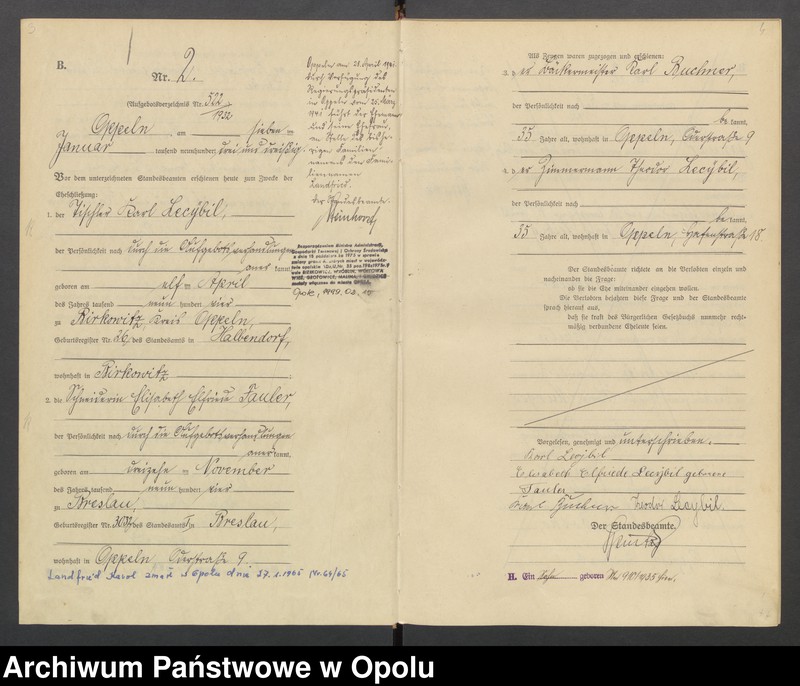 B.
Nr. 2.
(Aufgebotsverzeichnis Nr. 522/1932)
Oppeln, am sieben
Januar tausend neunhundert drei und dreißig.
Vor dem unterzeichneten Standesbeamten erschienen heute zum Zwecke der
Eheschließung:
1. der Tischler Karl Lecybil,
der Persönlichkeit nach durch die Aufgebotsverhandlungen
anerkannt,
geboren am elf April
des Jahres tausend neun hundert vier
zu Birkowitz Kreis Oppeln,
Geburtsregister Nr. 26 des Standesamts in Halbendorf,
wohnhaft in Birkowitz
2. die Schneiderin Elisabeth Elfriede Tauler,
der Persönlichkeit nach durch die Aufgebotsverhandlungen
anerkannt,
geboren am dreizehn November
des Jahres tausend neun hundert vier
zu Breslau,
Geburtsregister Nr. des Standesamts in Breslau,
wohnhaft in Oppeln Oderstraße 9
Landfried Karol zmarł w Opolu dnia 27.1.1965 Nr. 64/65
Oppeln am 28. April 1941
Durch Verfügung des
Regierungspräsidenten
in Oppeln vom 25. März
1941 führt der Ehemann
und seine Ehefrau,
an Stelle des bisherigen
Familiennamens
den Familiennamen
Landfried.
Der Standesbeamte.
Rozporządzeniem Ministra Administracji,
Gospodarki Terenowej i Ochrony Środowiska
Opole,
Als Zeugen waren zugezogen und erschienen:
3. der Bäckermeister Karl Buchner,
der Persönlichkeit nach
bekannt,
55 Jahre alt, wohnhaft in Oppeln, Oderstraße 9
4. der Zimmermann Theodor Lecybil,
der Persönlichkeit nach
bekannt,
55 Jahre alt, wohnhaft in Oppeln, Hafenstraße 18.
Der Standesbeamte richtete an die Verlobten einzeln und
nacheinander die Frage:
ob sie die Ehe miteinander eingehen wollen.
Die Verlobten bejahten diese Frage und der Standesbeamte
sprach hierauf aus,
daß sie kraft des Bürgerlichen Gesetzbuchs nunmehr recht-
mäßig verbundene Eheleute seien.
Vorgelesen, genehmigt und unterschrieben.
Karl Lecybil
Elisabeth Elfriede Lecybil geborene
Tauler
Karl Buchner Theodor Lecybil.
Der Standesbeamte.
H. Ein Sohn geboren
Archiwum Państwowe w Opolu